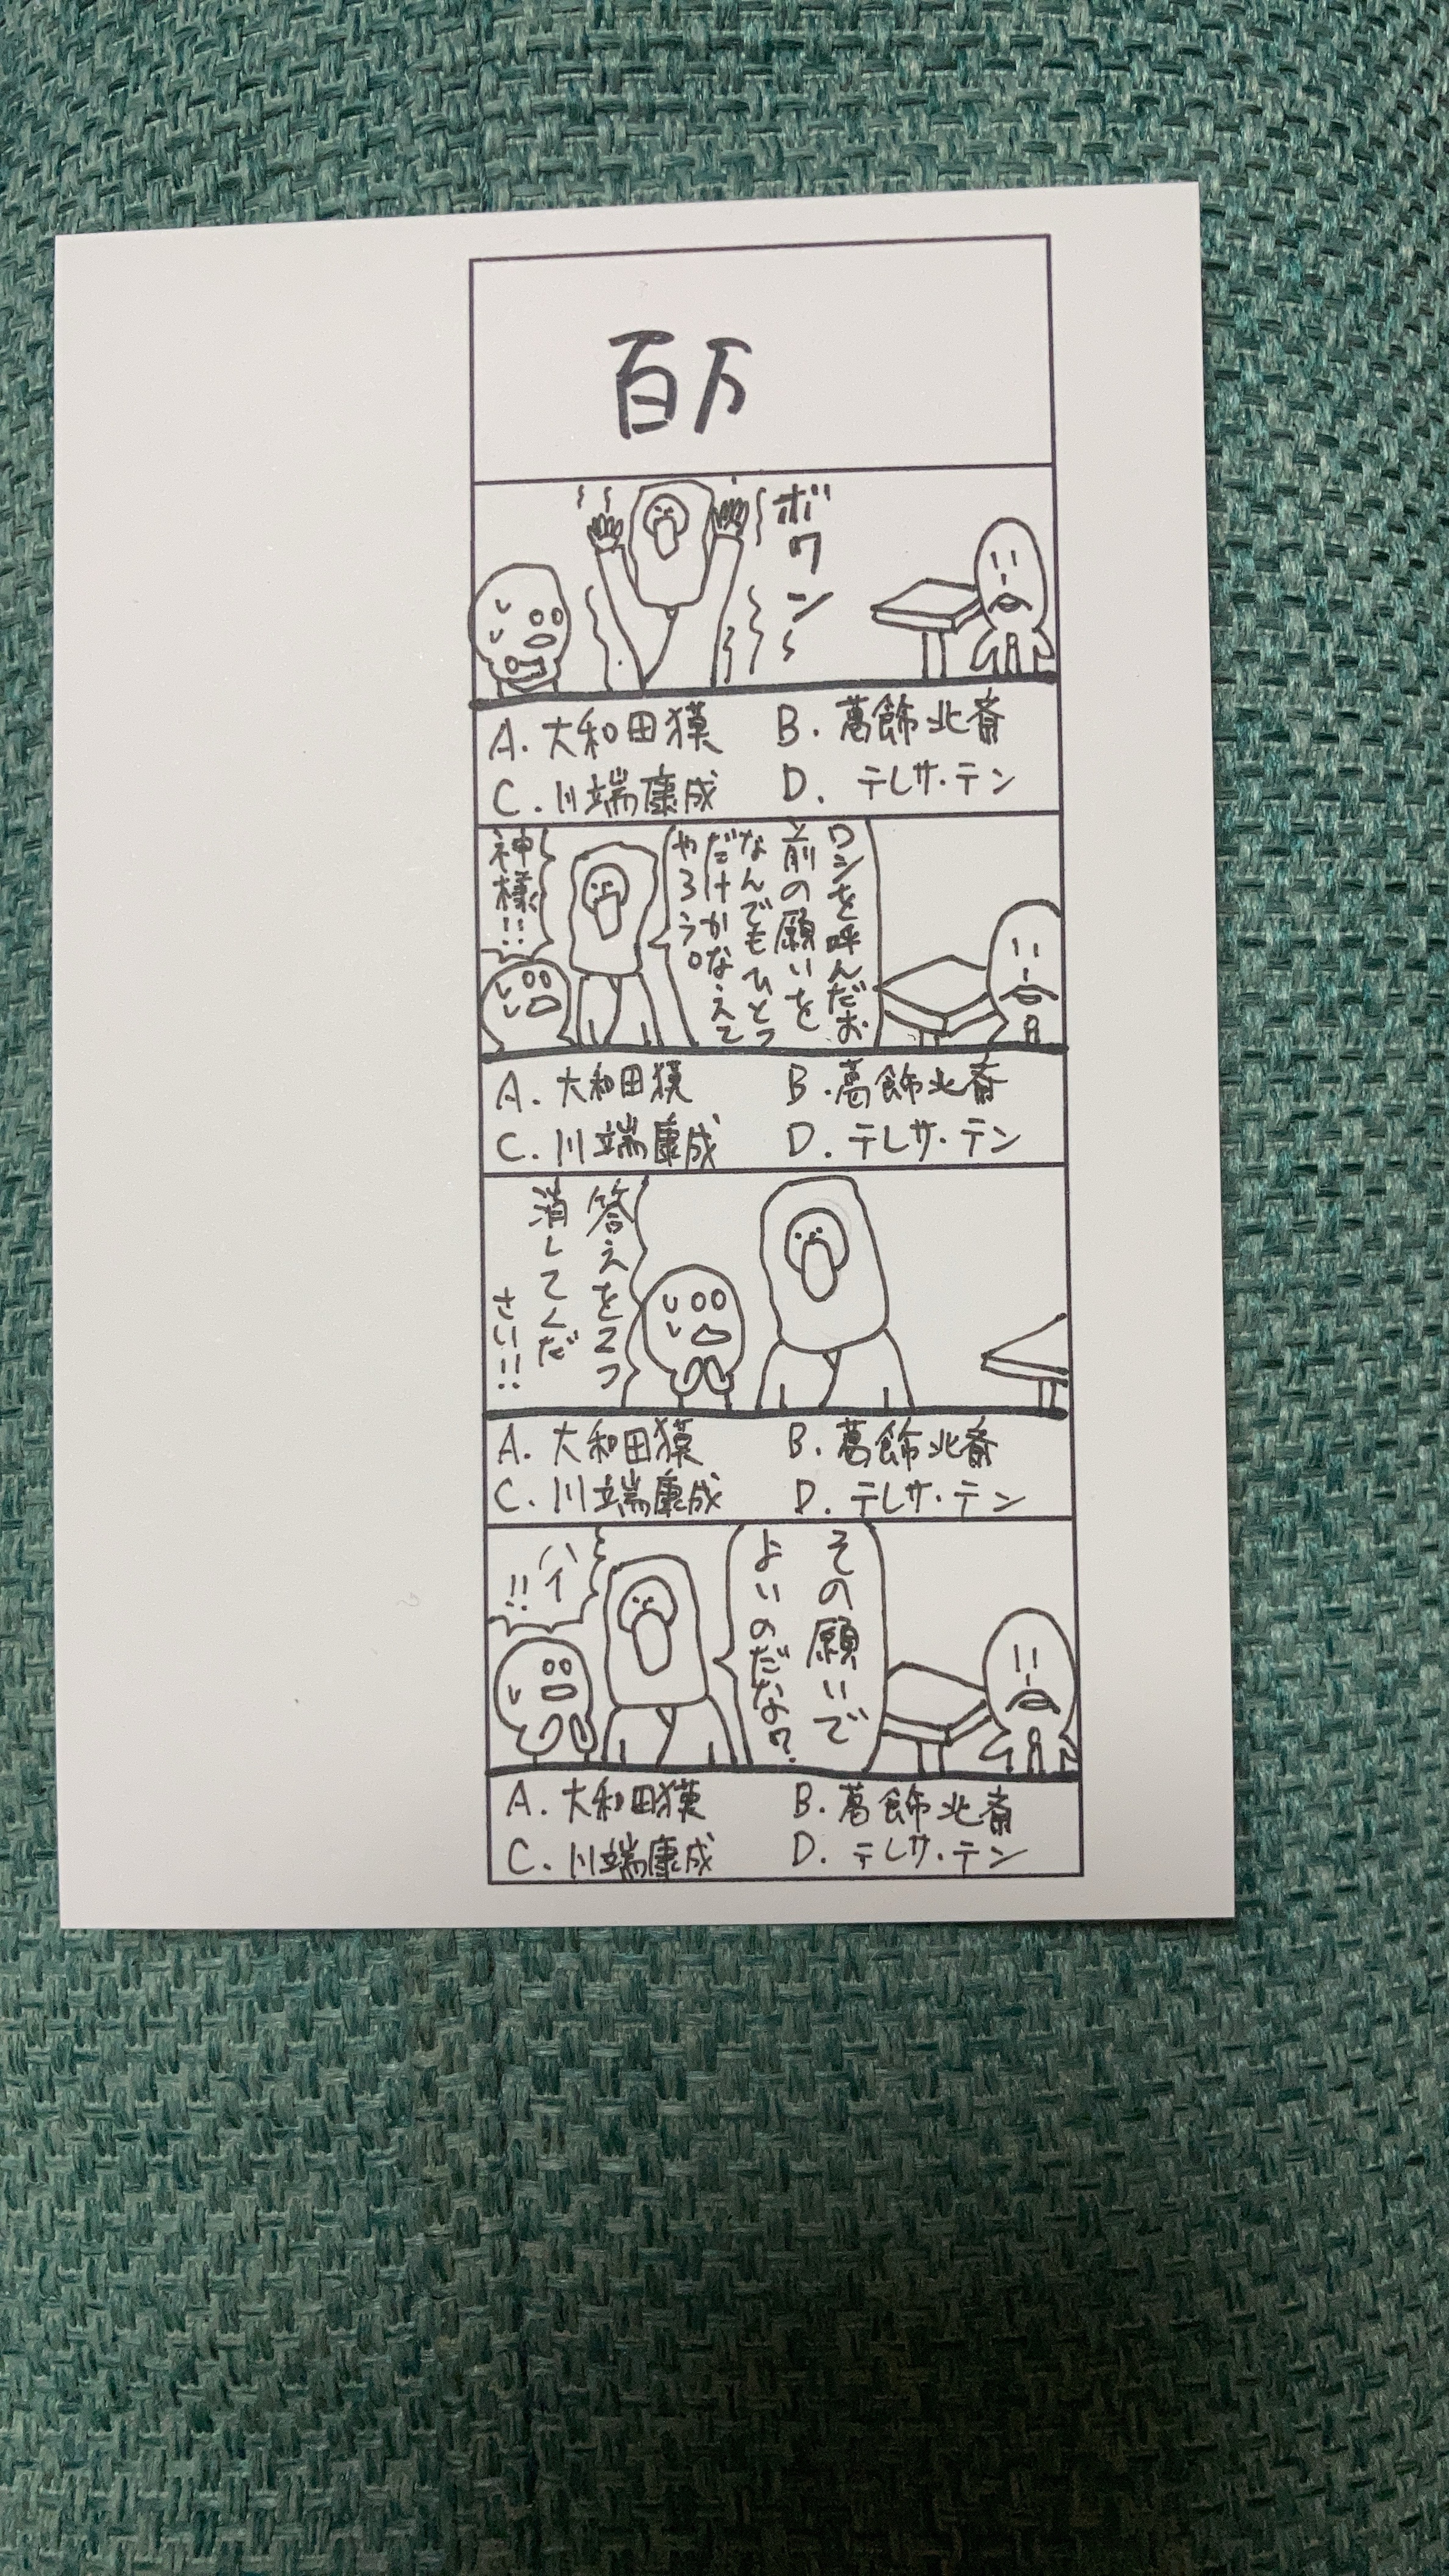 百万
ボワン
A. 大和田獏 B. 葛飾北斎
C. 川端康成 D. テレサ・テン
ワシを呼んだお
前の願いを
なんでもひとつ
だけかなえて
やろう。
神様!!
A. 大和田獏 B. 葛飾北斎
C. 川端康成 D. テレサ・テン
答えを2つ
消してくだ
さい!!
A. 大和田獏 B. 葛飾北斎
C. 川端康成 D. テレサ・テン
その願いで
よいのだな?
ハイ
!!
A. 大和田獏 B. 葛飾北斎
C. 川端康成 D. テレサ・テン